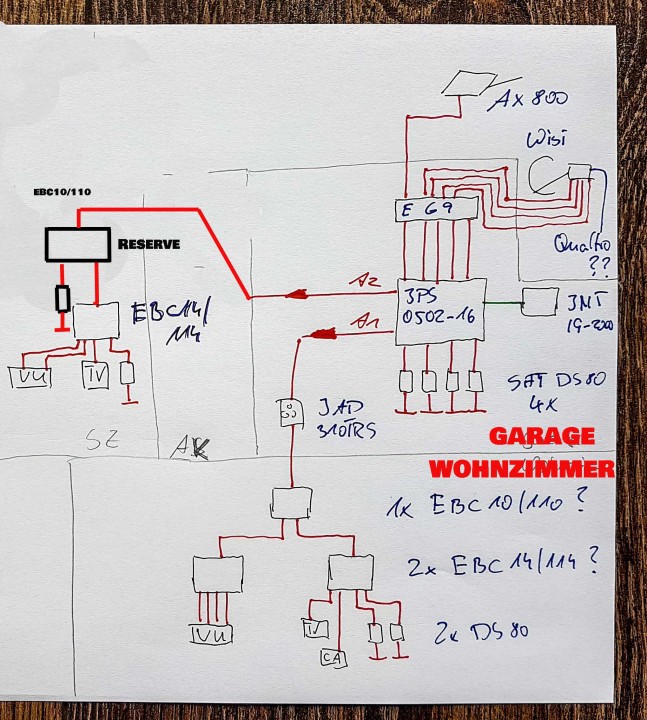 Ax 800
Wisi
EBC10/110
E G 9
RESERVE
Quattro
??
A2
JPS
0502-16
JNT
19-2000
EBC14/
114
A1
VU
TV
SAT DS80
4x
JAD
310TRS
SZ
AK
GARAGE
WOHNZIMMER
1x EBC 10/110 ?
2x EBC 14/114 ?
VU
TV
2x DS80
CA